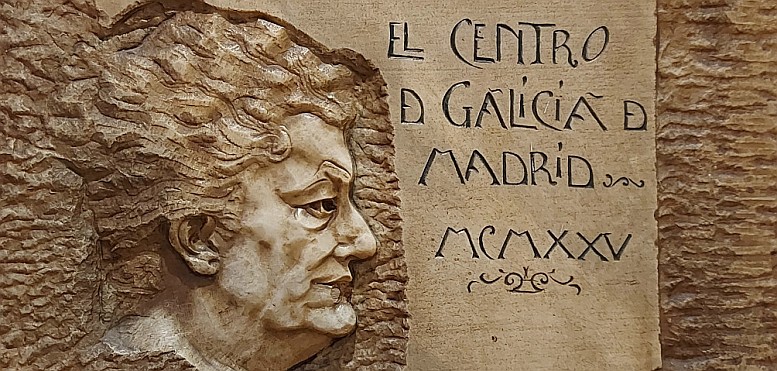 EL CENTRO
D GALICIA D
MADRID
MCMXXV